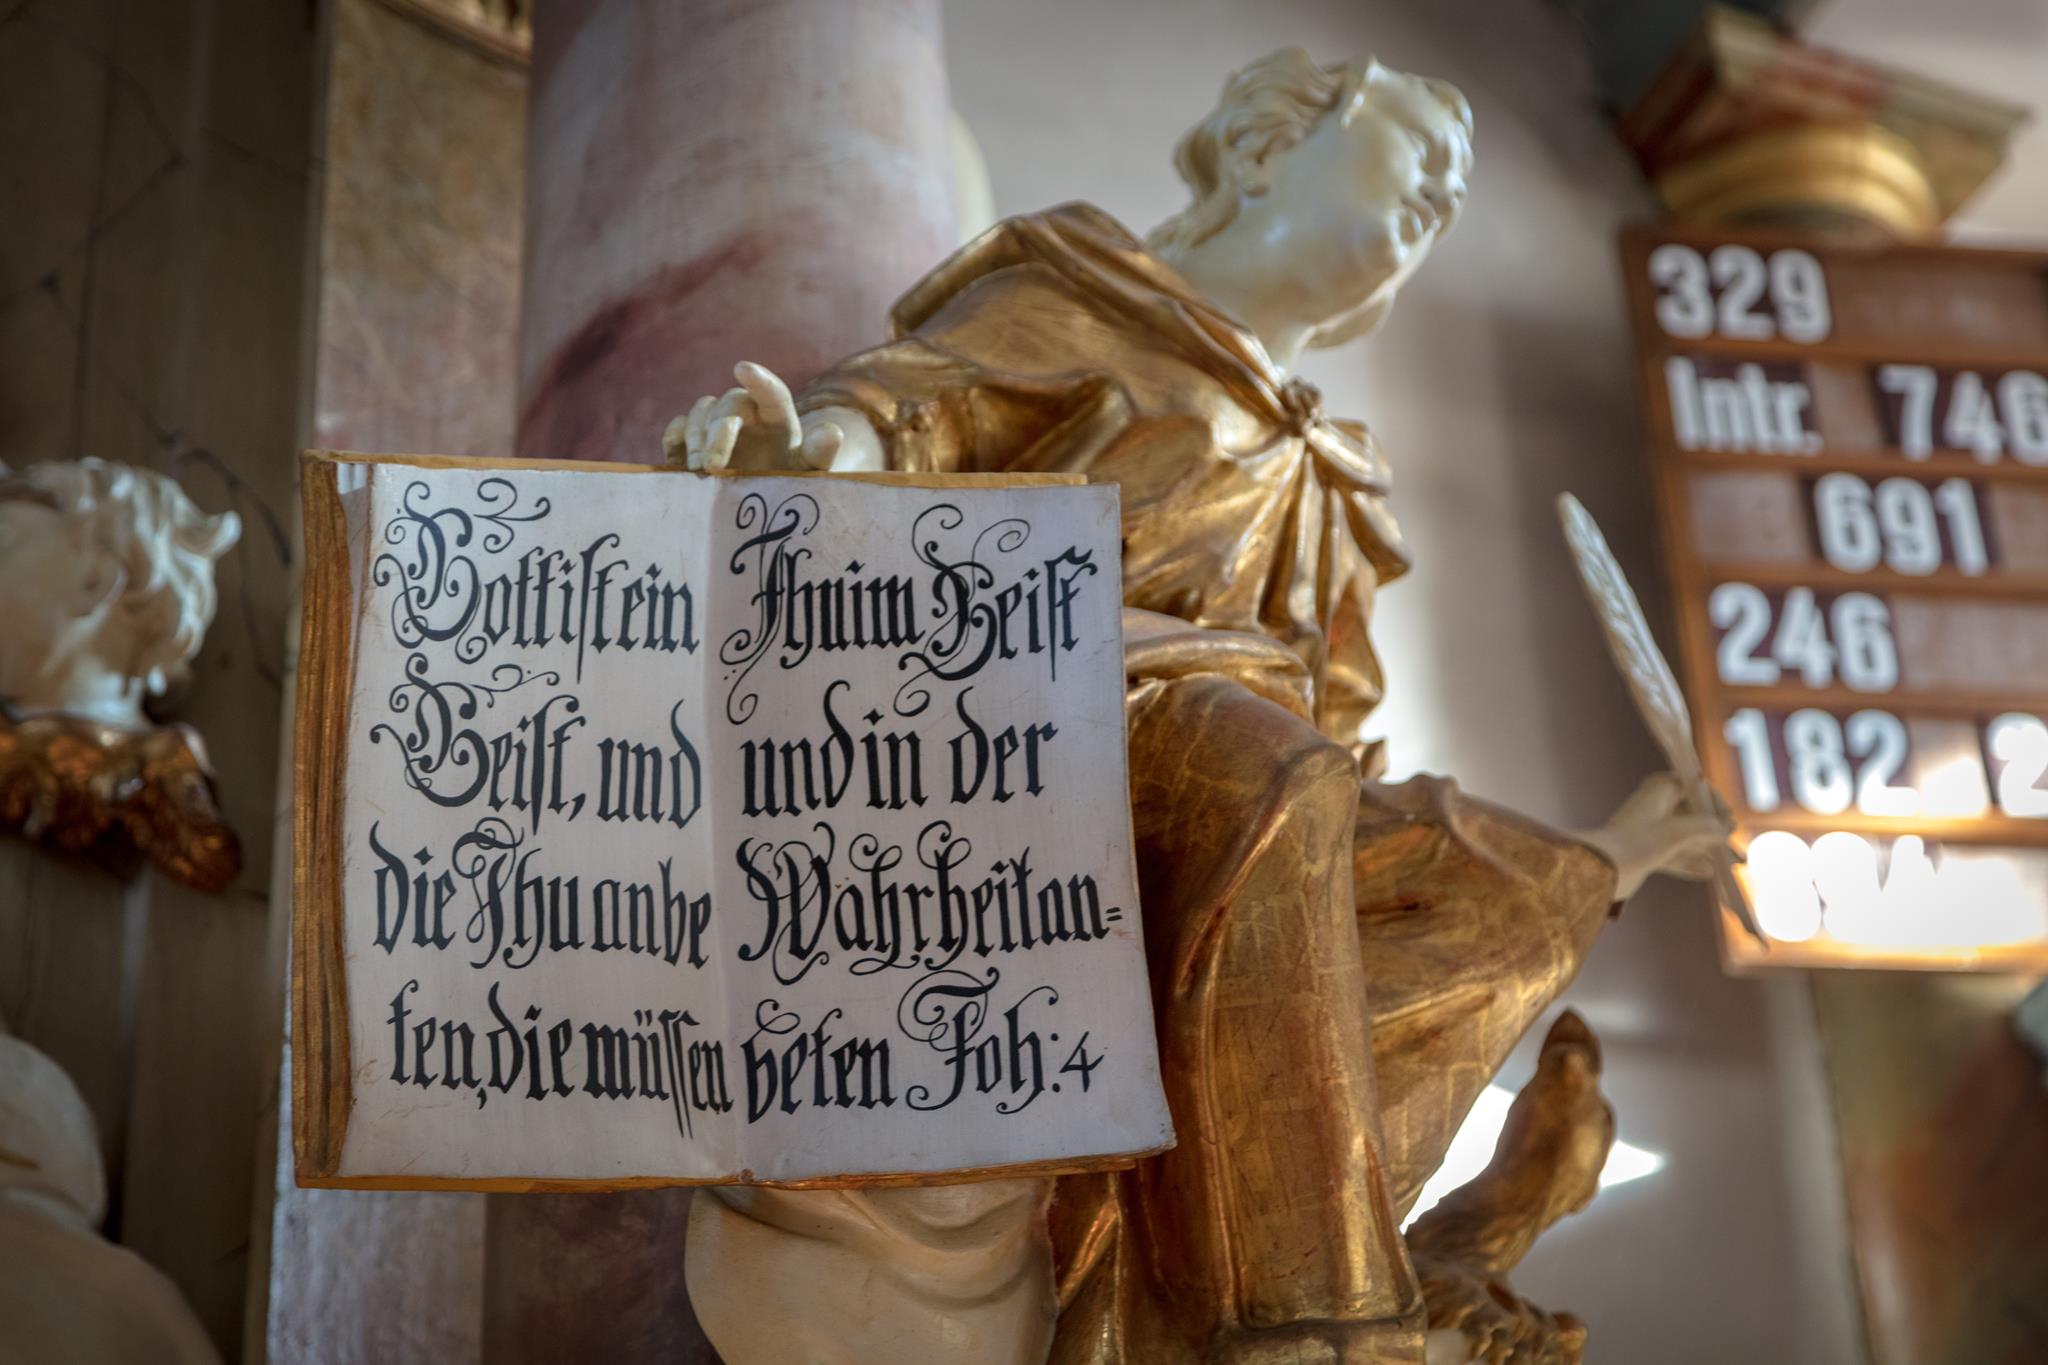 Gott ist ein
Geist, und
die Ihn anbe
ten, die müssen
Ihn im Geist
und in der
Wahrheit an=
beten Joh: 4
329
Intr. 746
691
246
182